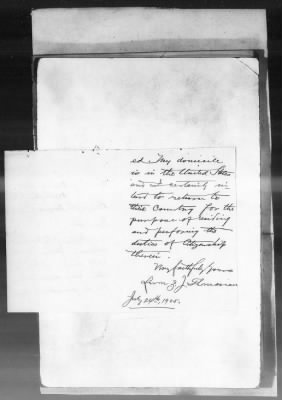 ed. My domicile
is in the United States
and I certainly in
tend to return to
this Country for the
purpose of residing
and performing the
duties of Citizenship
therein.
Very faithfully yours
July 24th, 1905.